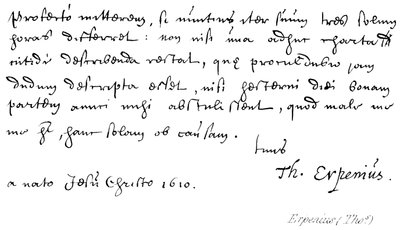 Profecto mitterem, si nuntius iter suum tres solum
horas differret: non nisi una adhuc charta
citidé describenda restat, quę proculdubio jam
dudum descripta esset, nisi hesterni diei bonam
partem amici mihi abstulissent, quod male me
me ht, hanc solam ob causam.
tuus
Th. Erpenius.
a nato Jesu Christo 1610.
Erpenius (Tho.)